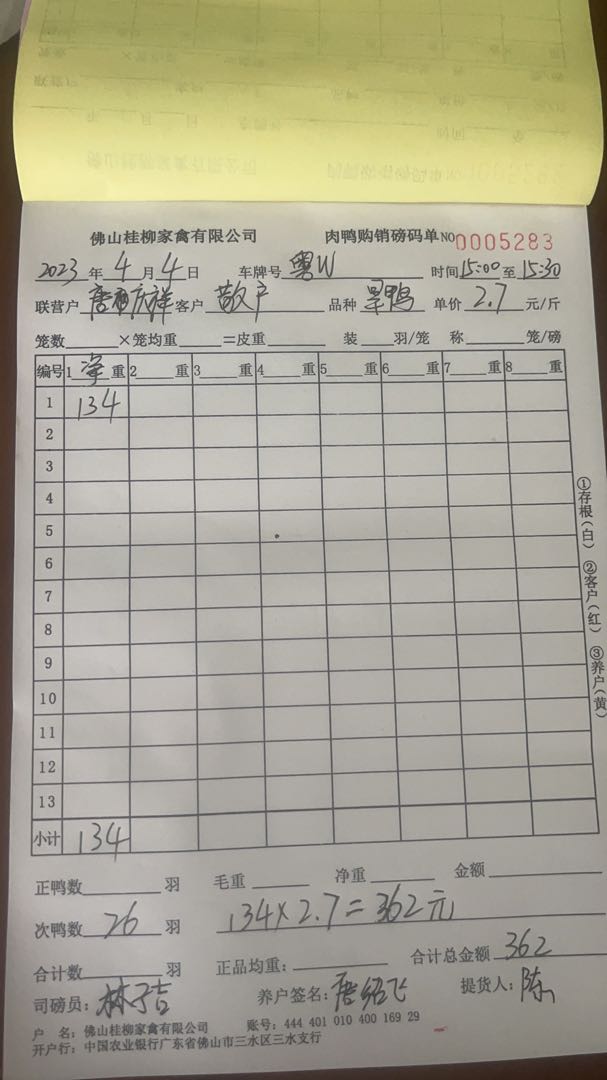 佛山桂柳家禽有限公司 肉鸭购销磅码单 NO 0005283
2023 年 4 月 4 日 车牌号 粤W 时间 15:00 至 15:30
联营户 唐 庆祥 客户 散户 品种 旱鸭 单价 2.7 元/斤
笼数 ×笼均重 =皮重 装 羽/笼 称 笼/磅
编号 1 净 重 2 重 3 重 4 重 5 重 6 重 7 重 8 重
1 134
2
3
4
5
6
7
8
9
10
11
12
13
小计 134
①存根(白) ②客户(红) ③养户(黄)
正鸭数 羽 毛重 净重 金额
次鸭数 26 羽 134×2.7=362元
合计数 羽 正品均重: 合计总金额 362
司磅员: 林子吉 养户签名: 唐绍飞 提货人: 陈
户 名: 佛山桂柳家禽有限公司 账号: 444 401 010 400 169 29
开户行: 中国农业银行广东省佛山市三水区三水支行